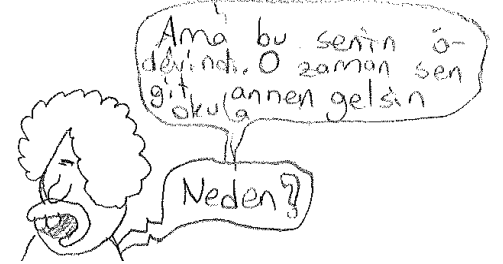 Ama bu senin ö-
devindi. O zaman sen
git, annen gelsin
okula
Neden?